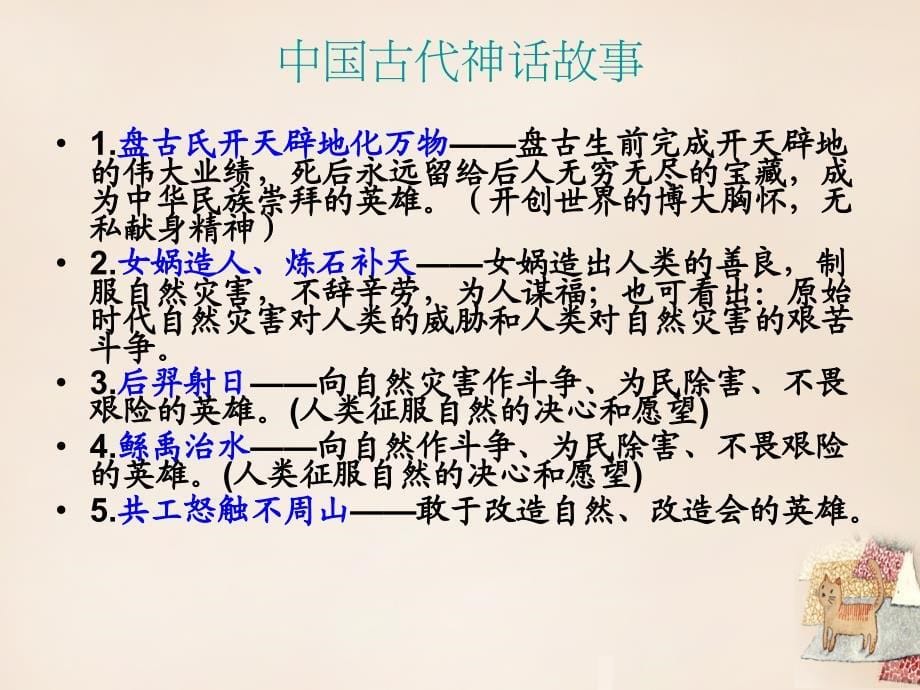 中国古代神话故事
• 1.盘古氏开天辟地化万物——盘古生前完成开天辟地
的伟大业绩，死后永远留给后人无穷无尽的宝藏，成
为中华民族崇拜的英雄。（开创世界的博大胸怀，无
私献身精神）
• 2.女娲造人、炼石补天——女娲造出人类的善良，制
服自然灾害，不辞辛劳，为人谋福；也可看出：原始
时代自然灾害对人类的威胁和人类对自然灾害的艰苦
斗争。
• 3.后羿射日——向自然灾害作斗争、为民除害、不畏
艰险的英雄。(人类征服自然的决心和愿望)
• 4.鲧禹治水——向自然作斗争、为民除害、不畏艰险
的英雄。(人类征服自然的决心和愿望)
• 5.共工怒触不周山——敢于改造自然、改造会的英雄。